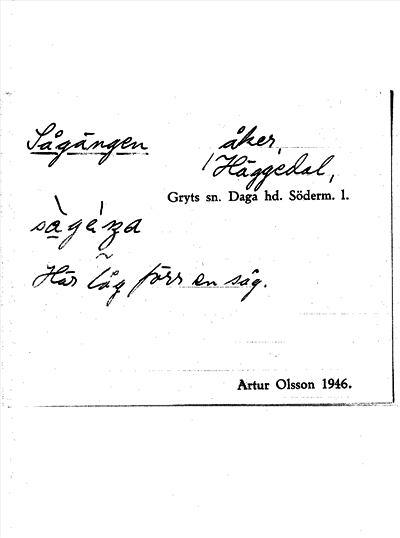 Sågängen åker,
/Häggedal,
Gryts sn. Daga hd. Söderm. l.
Här låg förr en såg.
Artur Olsson 1946.